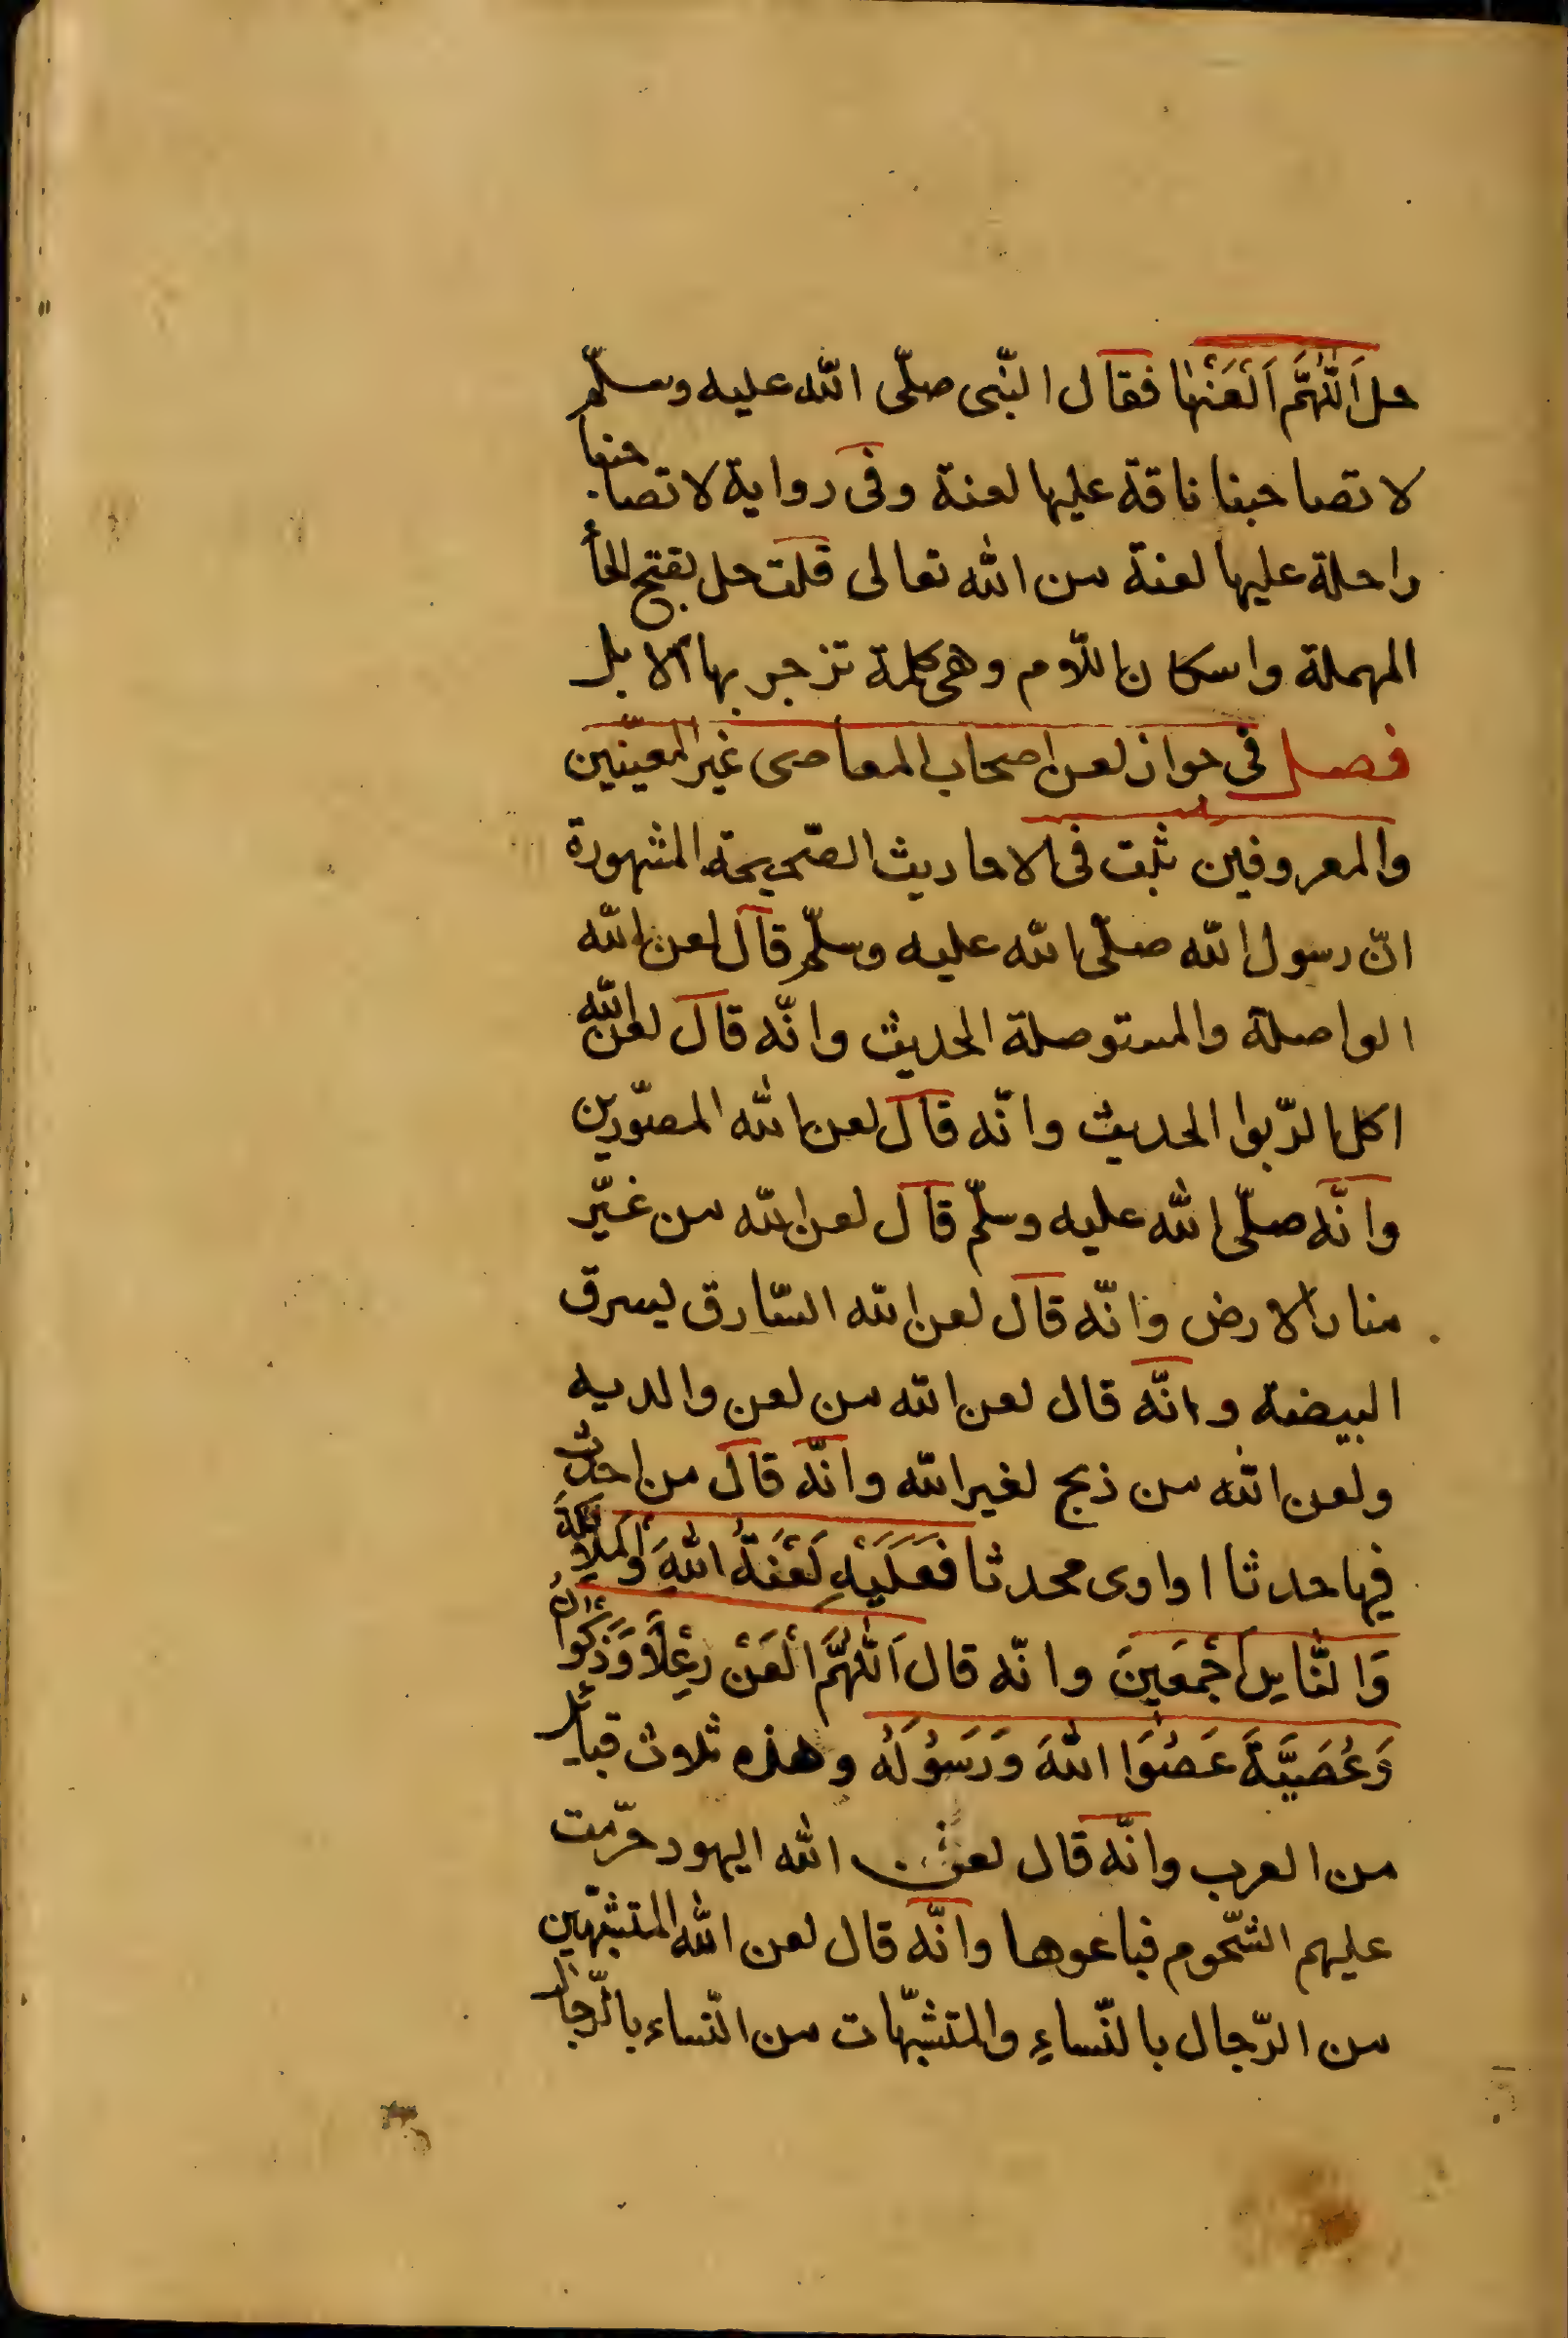 حل اَللّٰهُمَّ اَلْعَنْهٰا فقال النّبى صلّى الله عليه وسلّم
لا تصاحبنا ناقة عليها لعنة وفى رواية لا تصاحبنا
راحلة عليها لعنة من الله تعالى قلت حل بفتح الحأ
المهملة واسكان اللّام وهى كلمة تزجر بها الابل
فصل فى جواز لعن اصحاب المعاصى غير المعيّنين
والمعروفين ثبت فى الاحاديث الصّحيحة المشهورة
انّ رسول الله صلّى الله عليه وسلّم قال لعن الله
الواصلة والمستوصلة الحديث وانّه قال لعن الله
اكل الرّبوا الحديث وانّه قال لعن الله المصوّرين
وانّه صلّى الله عليه وسلّم قال لعن الله من غيّر
منار الارض وانّه قال لعن الله السّارق يسرق
البيضة وانّه قال لعن الله من لعن والديه
ولعن الله من ذبح لغير الله وانّه قال من احدث
فيها حدثا اواوى محدثا فَعَلَيْهِ لَعْنَةُ اللهِ وَالْمَلاَئِكَةِ
وَالنَّاسِ اَجْمَعِينَ وانّه قال اَللّٰهُمَّ الْعَنْ رِعْلاً وَذَكْوَانَ
وَعُصَيَّةَ عَصَوُا اللهَ وَرَسُولَهُ وهذه ثلاث قبائل
من العرب وانّه قال لعن الله اليهود حرّمت
عليهم الشّحوم فباعوها وانّه قال لعن الله المتشبّهين
من الرّجال بالنّساءِ والمتشبّهات من النّساء بالرّجال